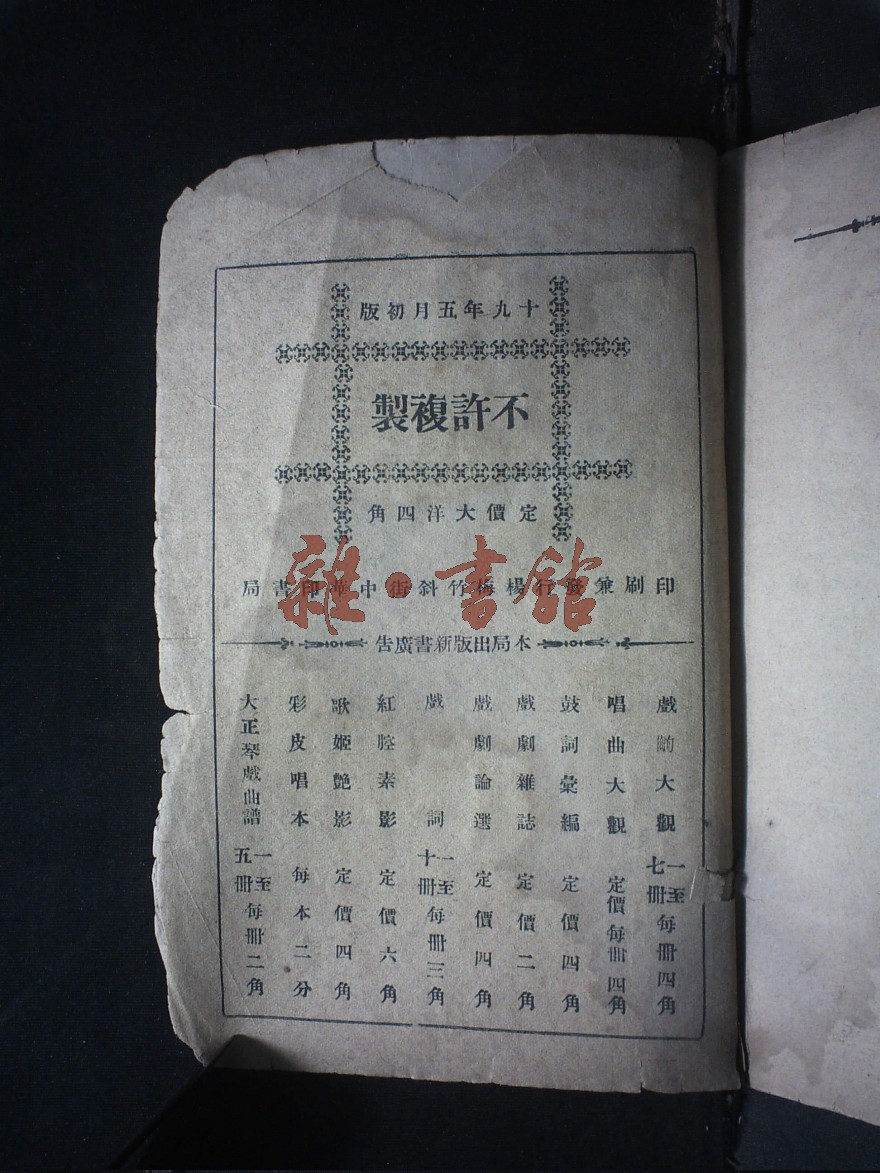 十九年五月初版
不許複製
定價大洋四角
印刷兼發行楊梅竹斜街中華印書局
雜·書館
本局出版新書廣告
戲齣大觀 一至七冊每冊四角
唱曲大觀 定價每冊四角
鼓詞彙編 定價四角
戲劇雜誌 定價二角
戲劇論選 定價四角
戲詞 一至十冊每冊三角
紅腔素影 定價六角
歌姬艷影 定價四角
彩皮唱本 每本二分
大正琴戲曲譜 一至五冊每冊二角